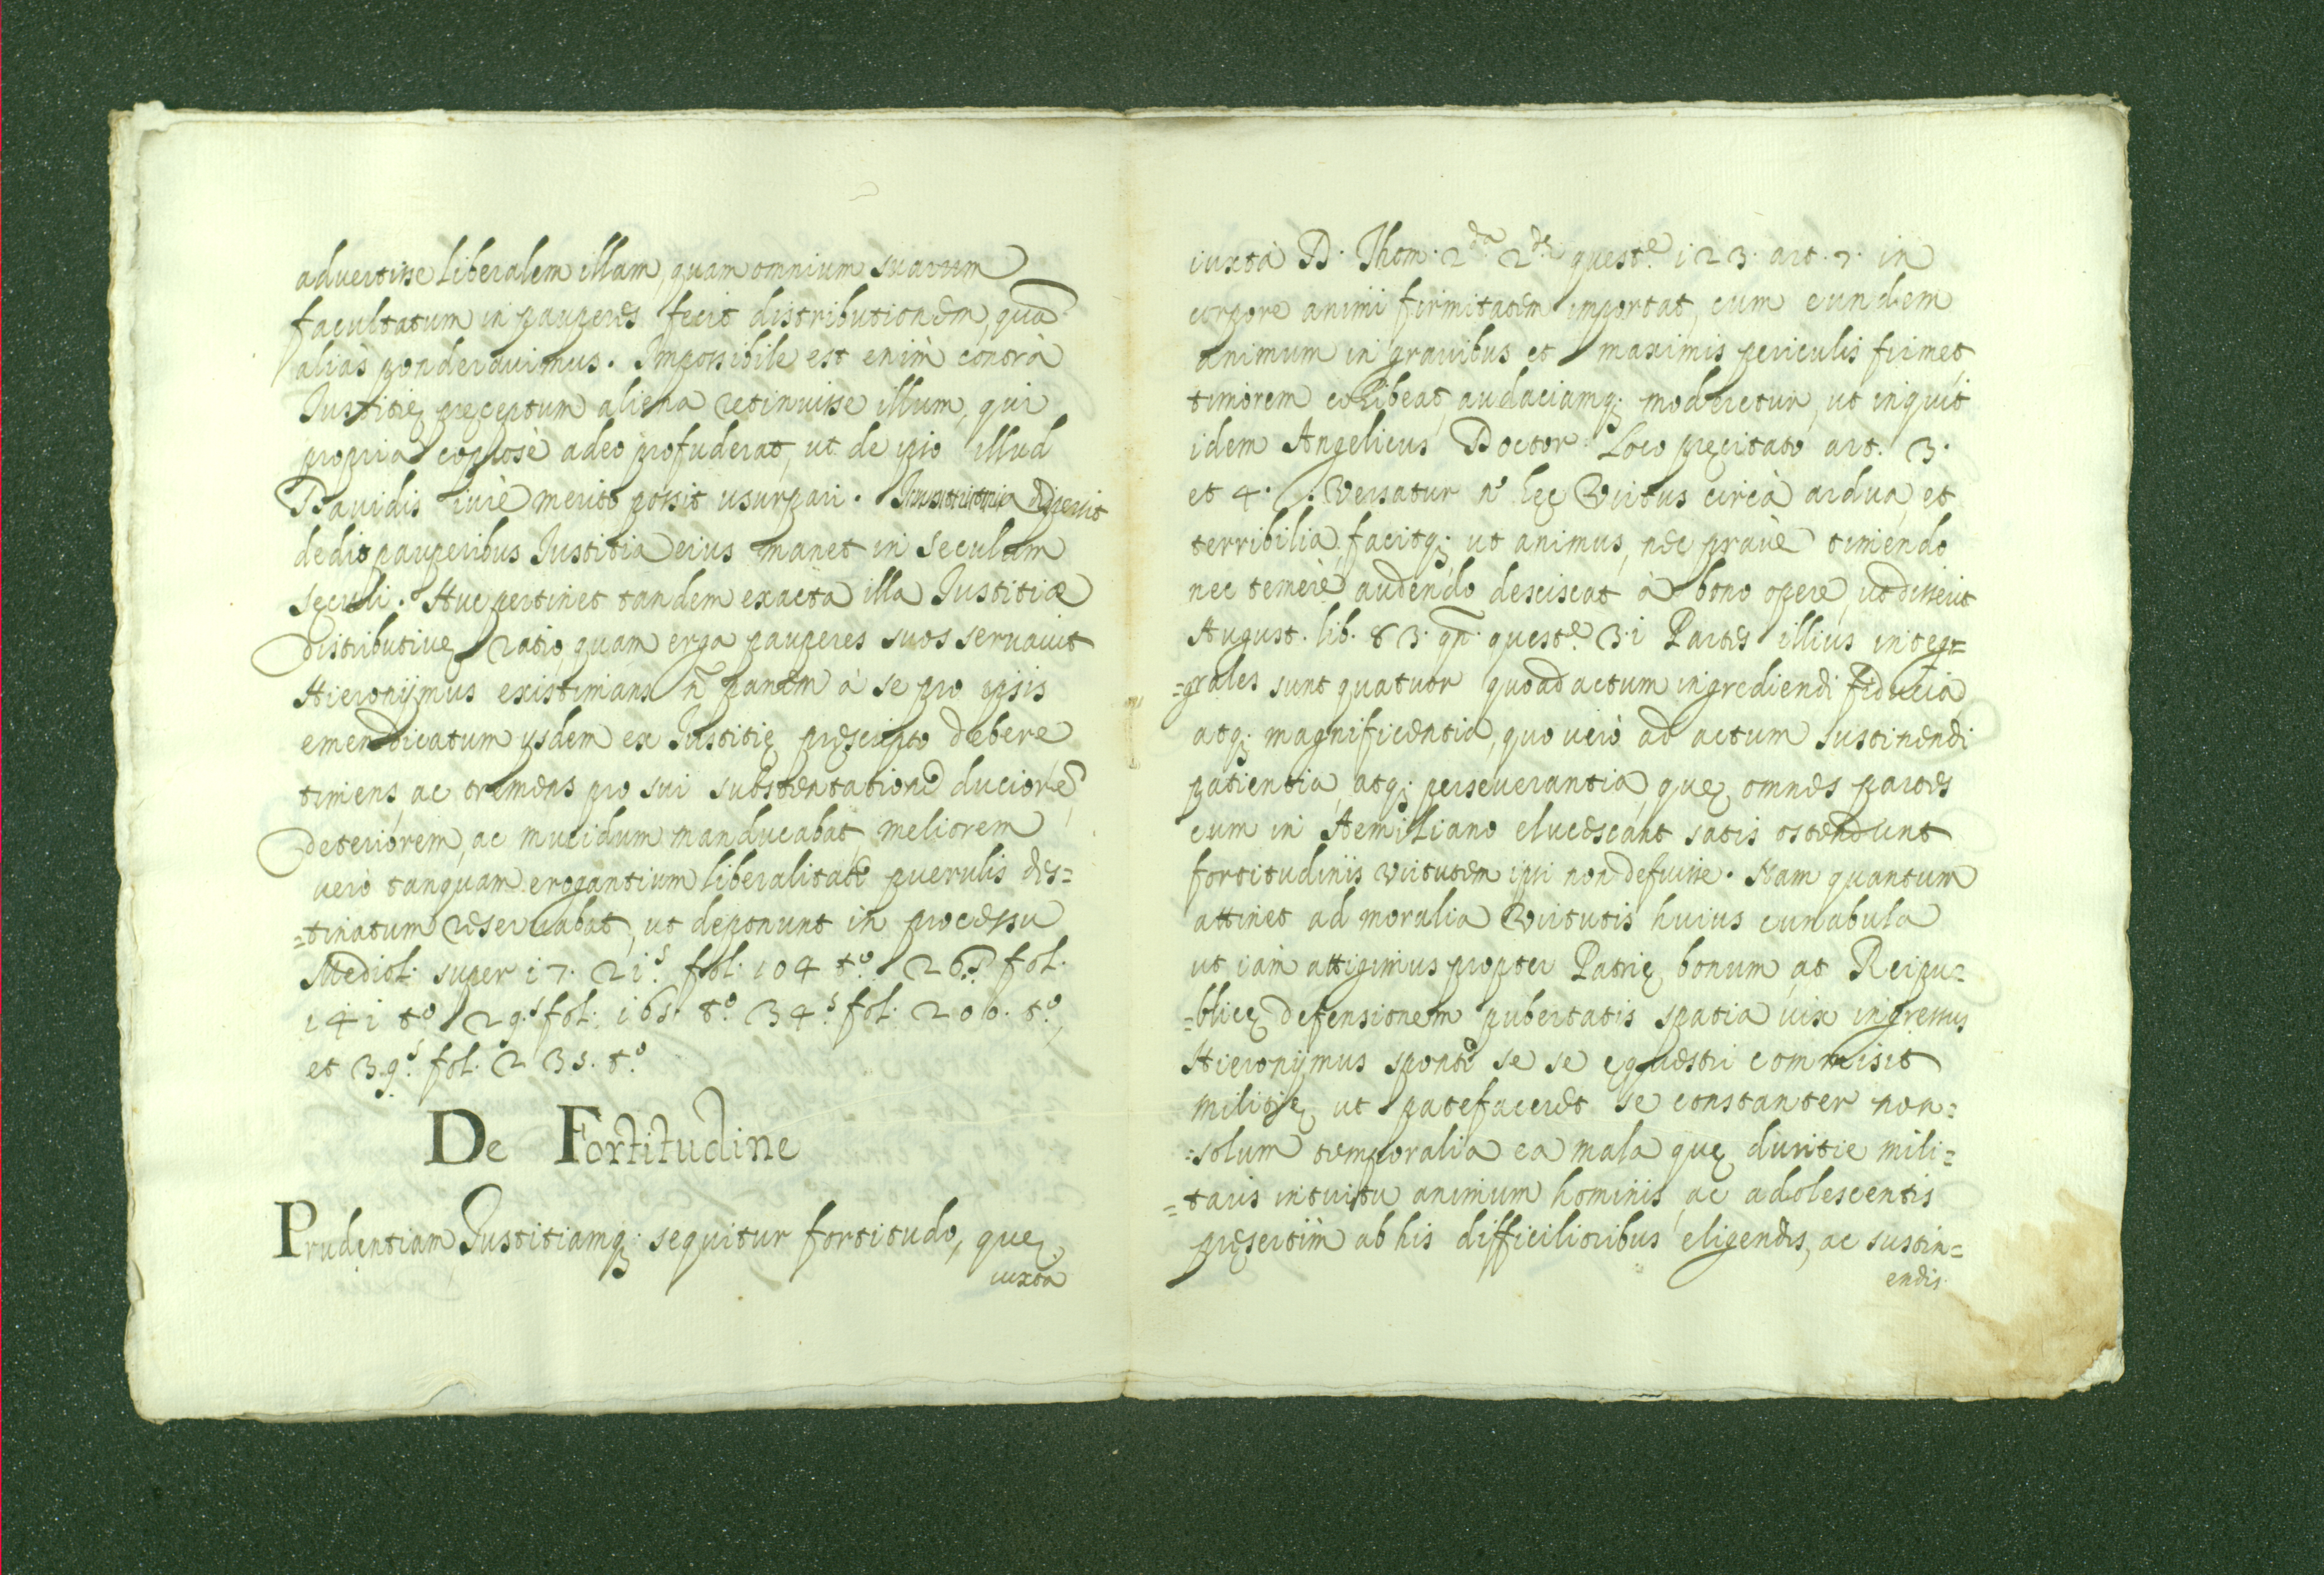 advertisse liberalem illam, quam omnium suarum
facultatum in pauperes fecit distributionem, quā
aliàs ponderavimus. Impossibile est enim contrà
Iustitię pręceptum aliena retinuisse illum, qui
propria copiosè adeo profuderat, ut de ipso illud
Davidis iurè merito possit usurpari.
dedit pauperibus Iustitia eius manet in seculum
sęculi. Huc pertinet tandem exacta illa Iustitiæ
distributivę ratio, quam erga pauperes suos servavit
Hieronijmus existimans n̄ panem à se pro ipsis
emendicatum ysdem ex Iustitię pręscripto debere
timens, ac tremens pro sui substentatione duriorē
deteriorem, ac mucidum manducabat, meliorem
verò tanquam erogantium liberalitate puerulis des=
=tinatum reservabat, ut deponunt in processu
Mediol. super 17. 21.s fol. 104 to. 26.s fol.
141 to 29.s fol. 165. to. 34.s fol. 206. to,
et 39.s fol. 235. to.
De Fortitudine
Prudentiam Iustitiamq; sequitur fortitudo, quę
iuxta
iuxtà D. Thom. 2da 2dę quest.e 123. art. 7. in
corpore animi firmitatem importat, cum eundem
animum in gravibus et maximis periculis firmet,
timorem cohibeat, audaciamq; moderetur, ut inquit
idem Angelicus Doctor Loco pręcitato art. 3.
et 4. Versatur n. hęc Virtus circà ardua, et
terribilia, facitq; ut animus, nec pravè timendo
nec temerè audendo desciscat à bono opere, ut disserit
August. lib. 83. qq. quest.e 31 Partes illius integr=
=grales sunt quatuor quoad actum ingrediendi fiducia
atq; magnificentia, quo verò ad actum sustinendi
patientia, atq; perseverantia, quę omnes partes
cum in Aemiliano elucescant satis ostendunt
fortitudinis virtutem ipsi non defuisse. Nam quantum
attinet ad moralia Virtutis huius cunabula
ut iam attigimus propter Patrię bonum, at Reipu=
=blicę defensionem pubertatis spatia vix ingressus
Hieronijmus sponte se se equestri commisit
militię, ut patefaceret se constanter non=
=solum temporalia ea mala quę duritie mili=
=taris intuitu animum hominis, ac adolescentis
pręsertim ab his difficilioribus eligendis, ac sustin=
endis.